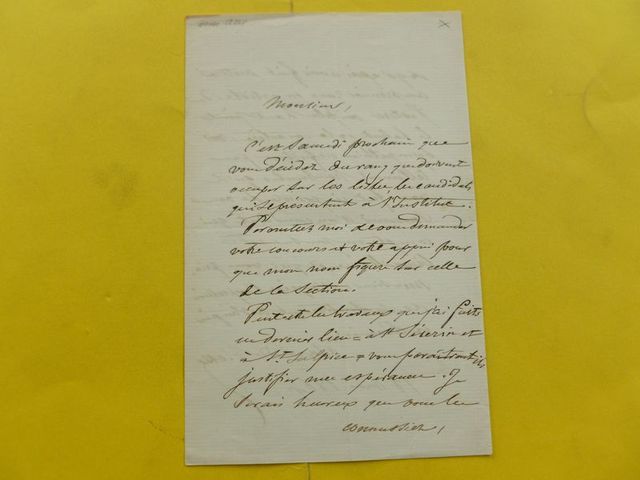 Monsieur,
C'est Samedi prochain que
vous décidez du rang que doivent
occuper sur les listes, les candidats
qui se présentent à l'Institut.
Permettez moi de vous demander
votre concours et votre appui pour
que mon nom figure sur celle
de la Section.
Peut-être les travaux que j'ai faits
en dernier lieu = à St Séverin et
à St. Sulpice = vous paraîtront ils
justifier mes espérances. Je
serais heureux que vous les
connussiez,